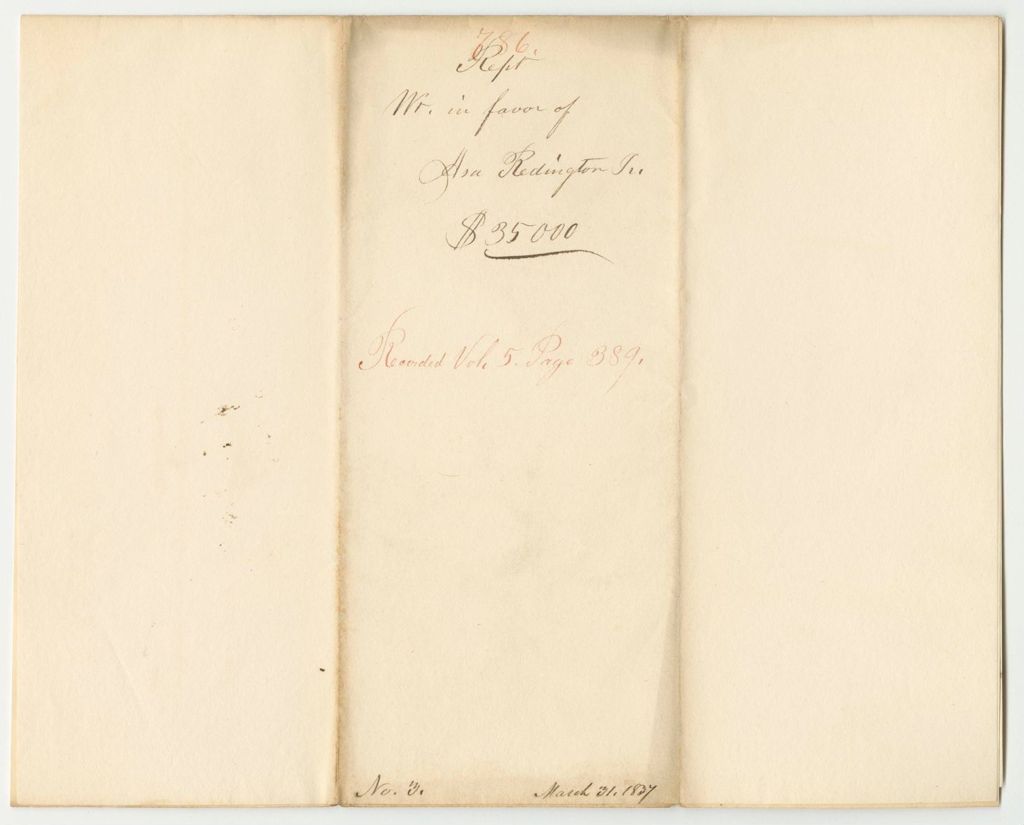 786.
Rept
Wt. in favor of
Asa Redington Jr.
$35000
Recorded Vol. 5. Page 389.
No. 3. March 31. 1837